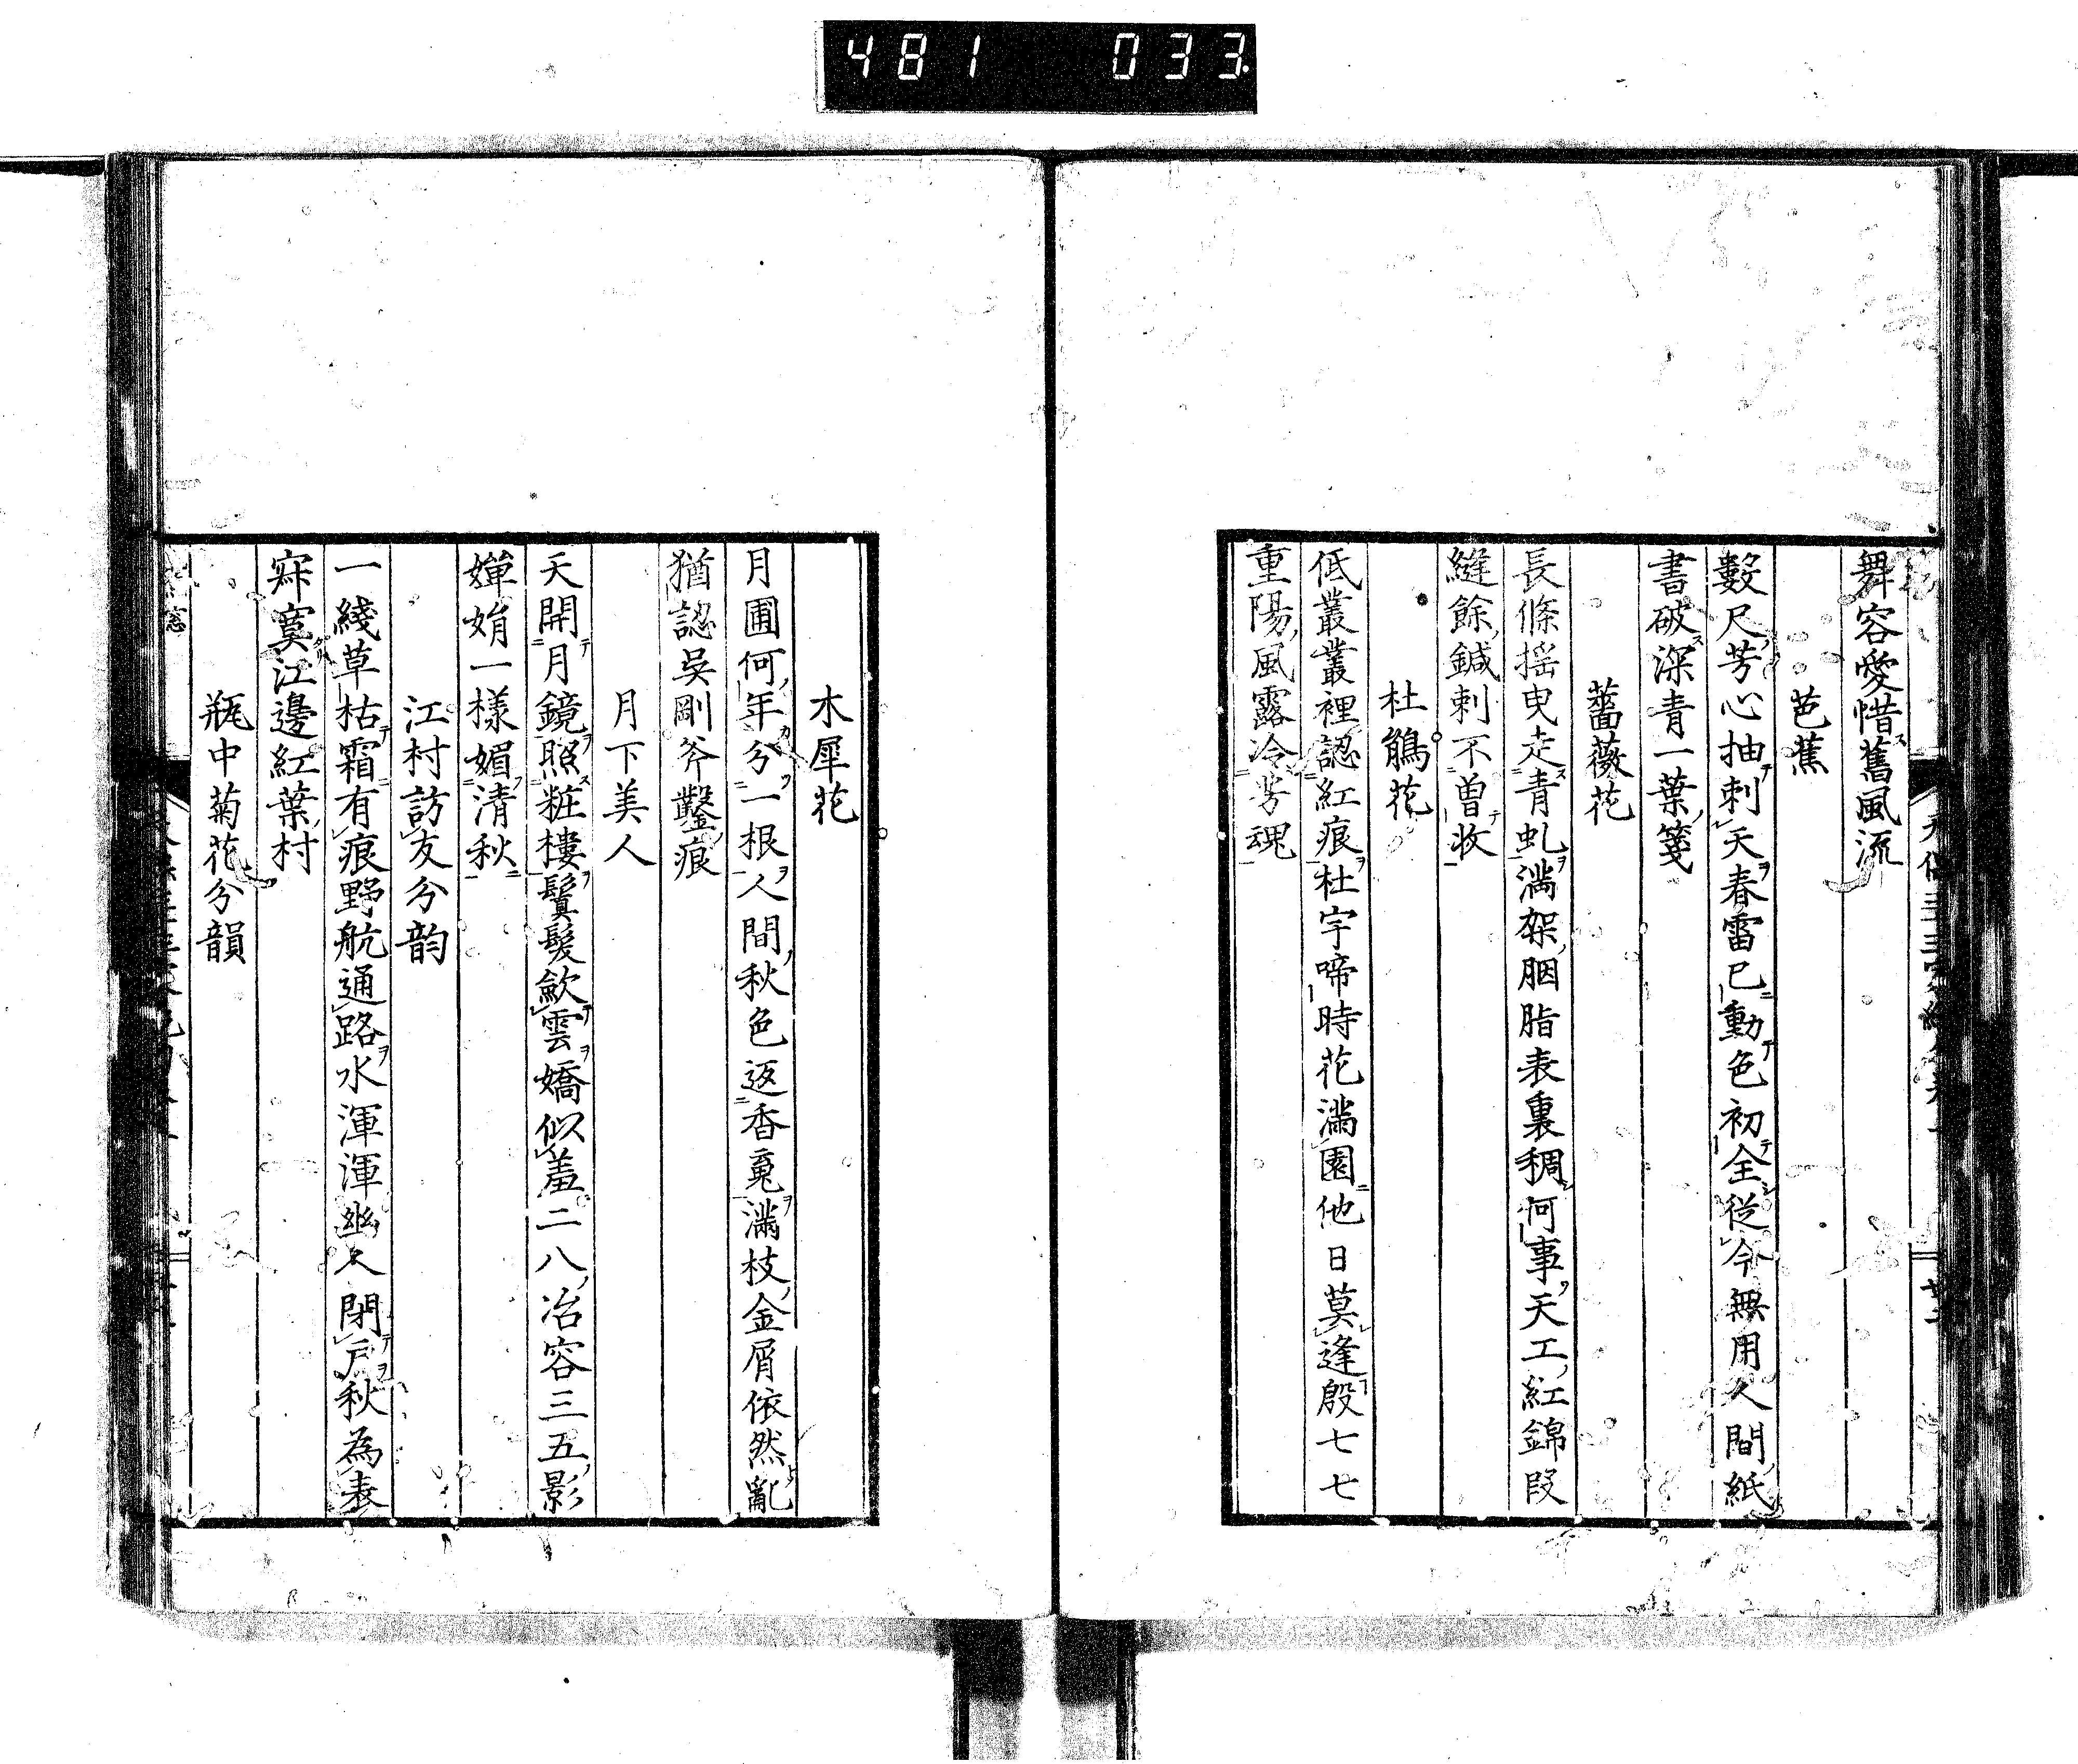 481 033
舞容愛惜舊風流
芭蕉
數尺芳心抽刺天春雷已動色初全從今無用人間紙
書破深青一葉箋
薔薇花
長條揺曳走青虬滿架胭脂表裏稠何事天工紅錦段
縫餘鍼刺不曽收
杜鵑花
低叢叢裡認紅痕杜宇啼時花滿園他日莫逢殷七七
重陽風露冷芳魂
木犀花
月圃何年分一根人間秋色返香䰟滿枝金屑依然亂
猶認吳剛斧鑿痕
月下美人
天開月鏡照粧樓鬒髮歛雲嬌似羞二八冶容三五影
嬋娟一樣媚清秋
江村訪友分韵
一綫草枯霜有痕野航通路水渾渾幽人閉戶秋為表
寂寞江邊紅葉村
瓶中菊花分韻